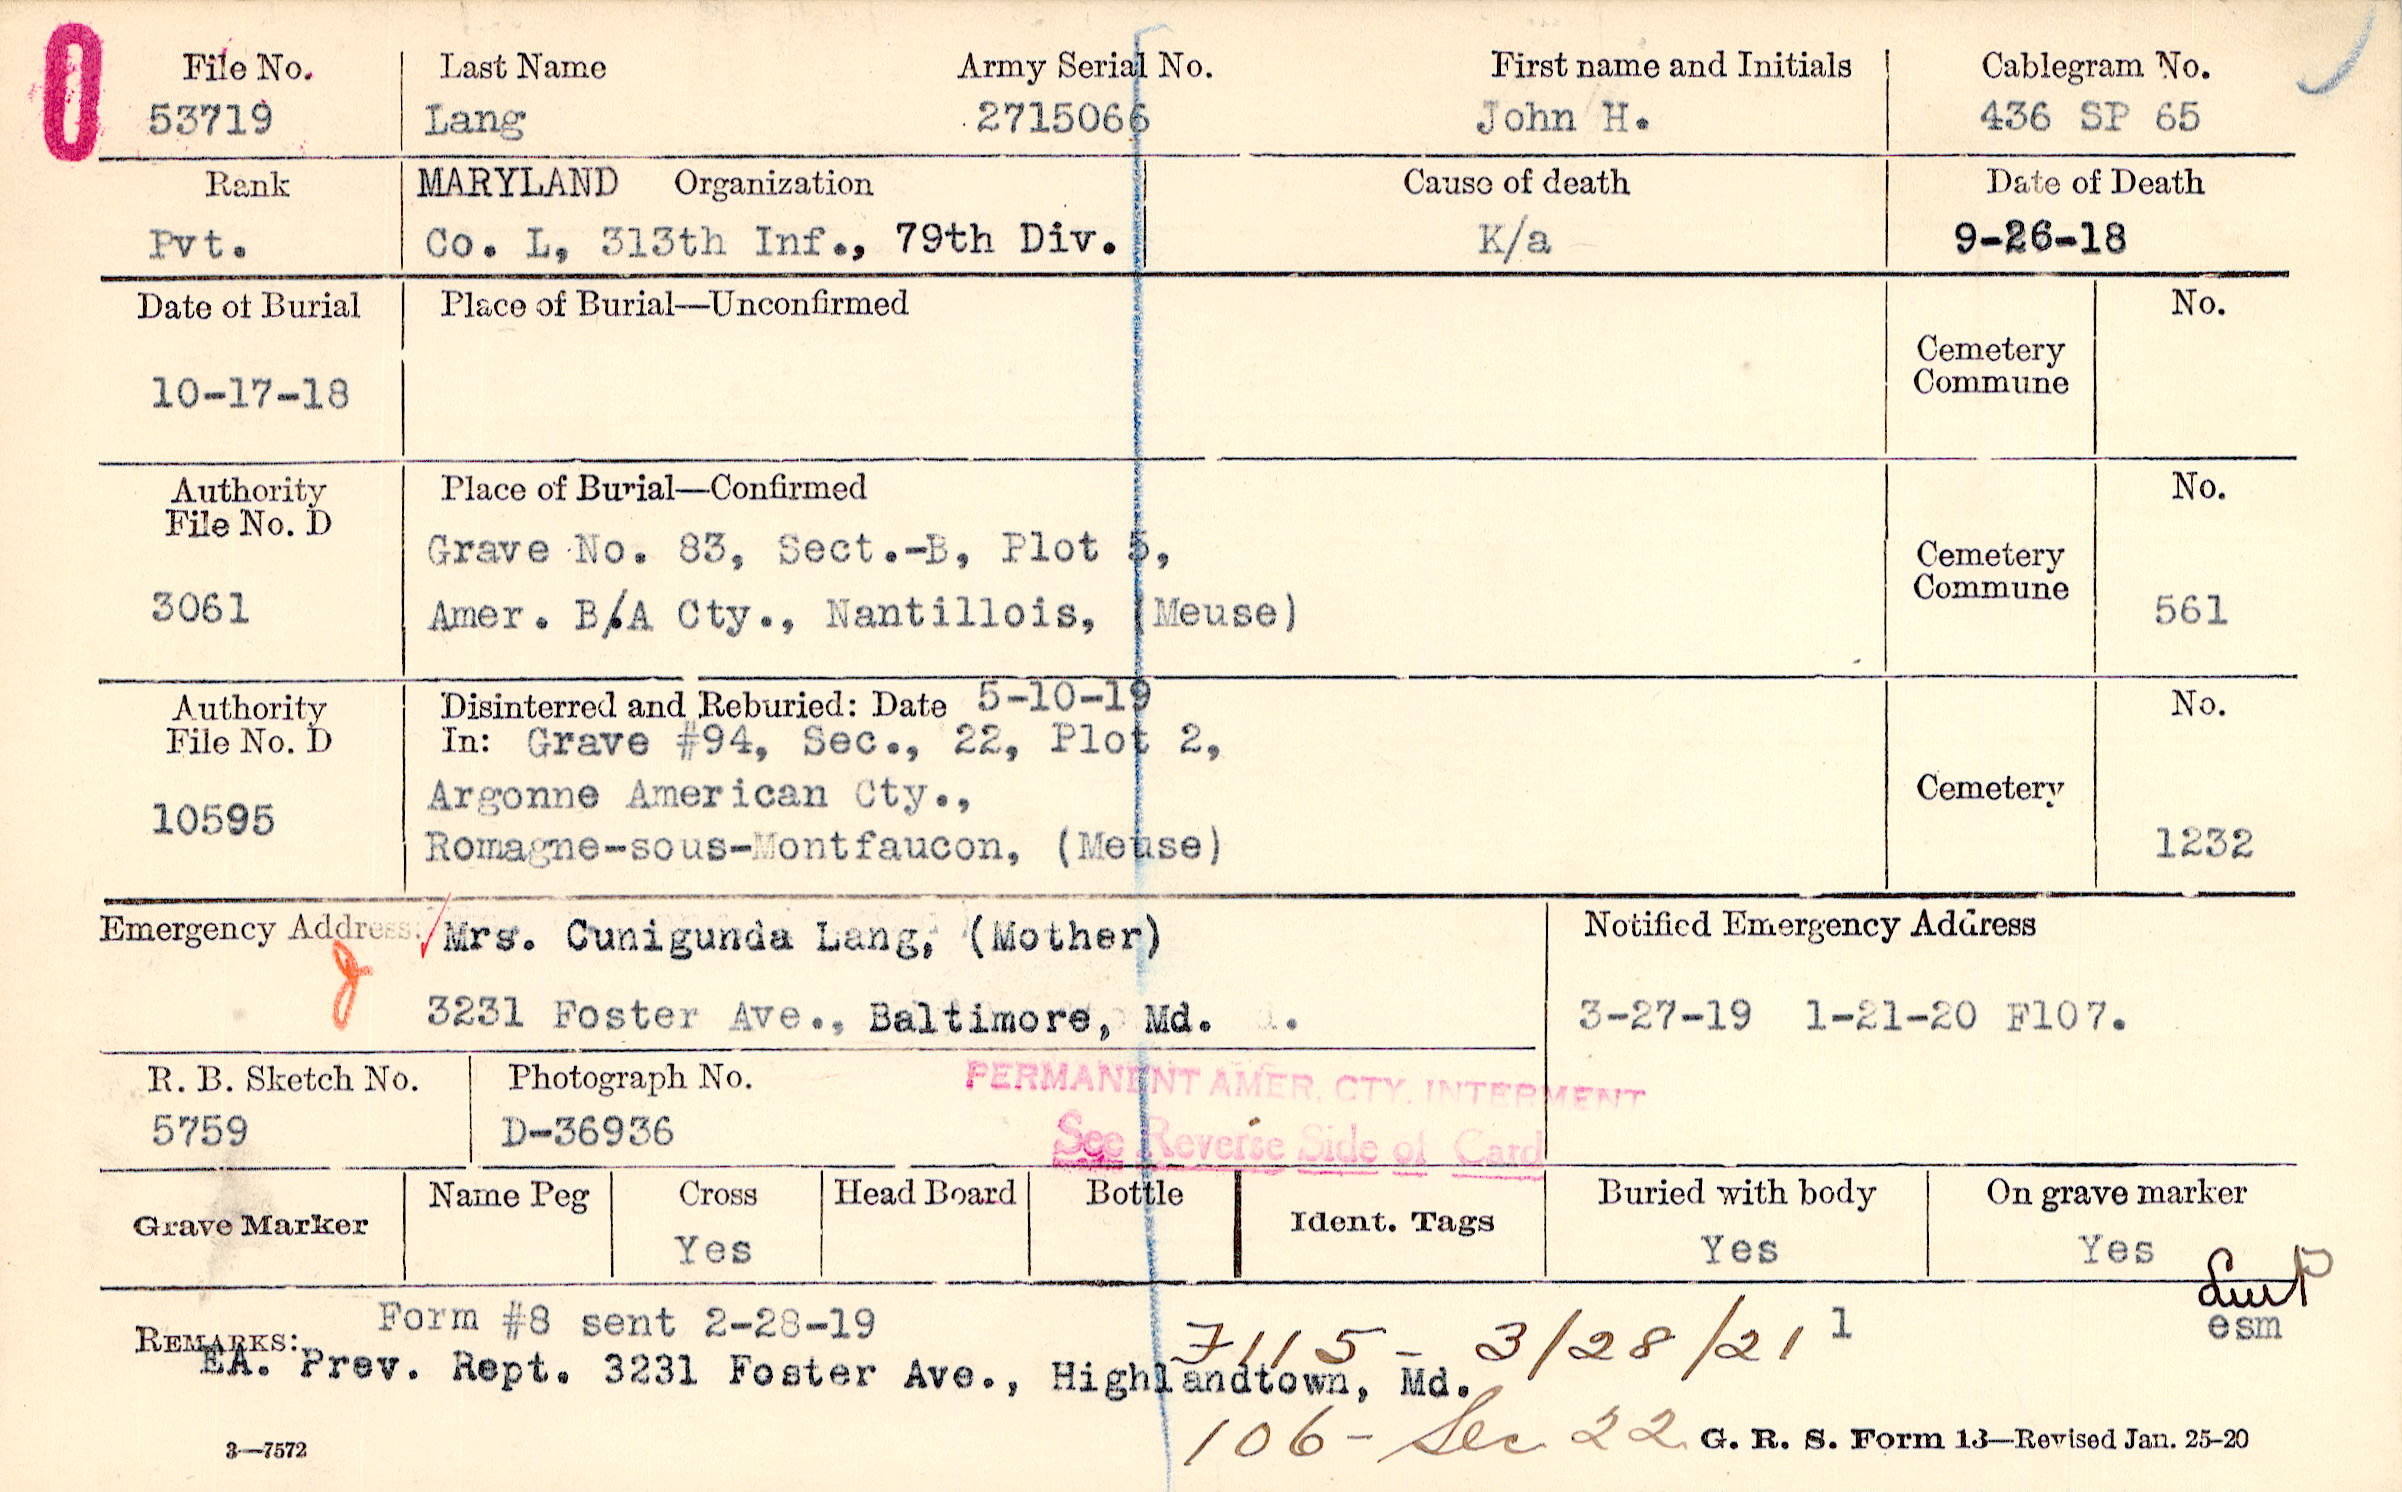 File No. Last Name Army Serial No. First name and Initials Cablegram No.
53719 Lang 2715066 John H. 436 SP 65
Rank MARYLAND Organization Cause of death Date of Death
Pvt. Co. L, 313th Inf., 79th Div. K/a 9-26-18
Date of Burial Place of Burial—Unconfirmed No.
Cemetery
Commune
10-17-18
Authority Place of Burial—Confirmed No.
File No. D
Grave No. 83, Sect.-B, Plot 5, Cemetery
Commune
3061 Amer. B/A Cty., Nantillois, (Meuse) 561
Authority Disinterred and Reburied: Date 5-10-19 No.
File No. D In: Grave #94, Sec., 22, Plot 2,
Argonne American Cty., Cemetery
10595 Romagne-sous-Montfaucon, (Meuse) 1232
Emergency Address: Mrs. Cunigunda Lang, (Mother) Notified Emergency Address
3231 Foster Ave., Baltimore, Md. 3-27-19 1-21-20 F107.
R. B. Sketch No. Photograph No. PERMANENT AMER. CTY. INTERMENT
5759 D-36936 See Reverse Side of Card
Grave Marker Name Peg Cross Head Board Bottle Ident. Tags Buried with body On grave marker
Yes Yes Yes
Form #8 sent 2-28-19 7115- 3/28/21 1 esm
REMARKS:
EA. Prev. Rept. 3231 Foster Ave., Highlandtown, Md.
106- Sec 22
3—7572 G. R. S. Form 13—Revised Jan. 25-20